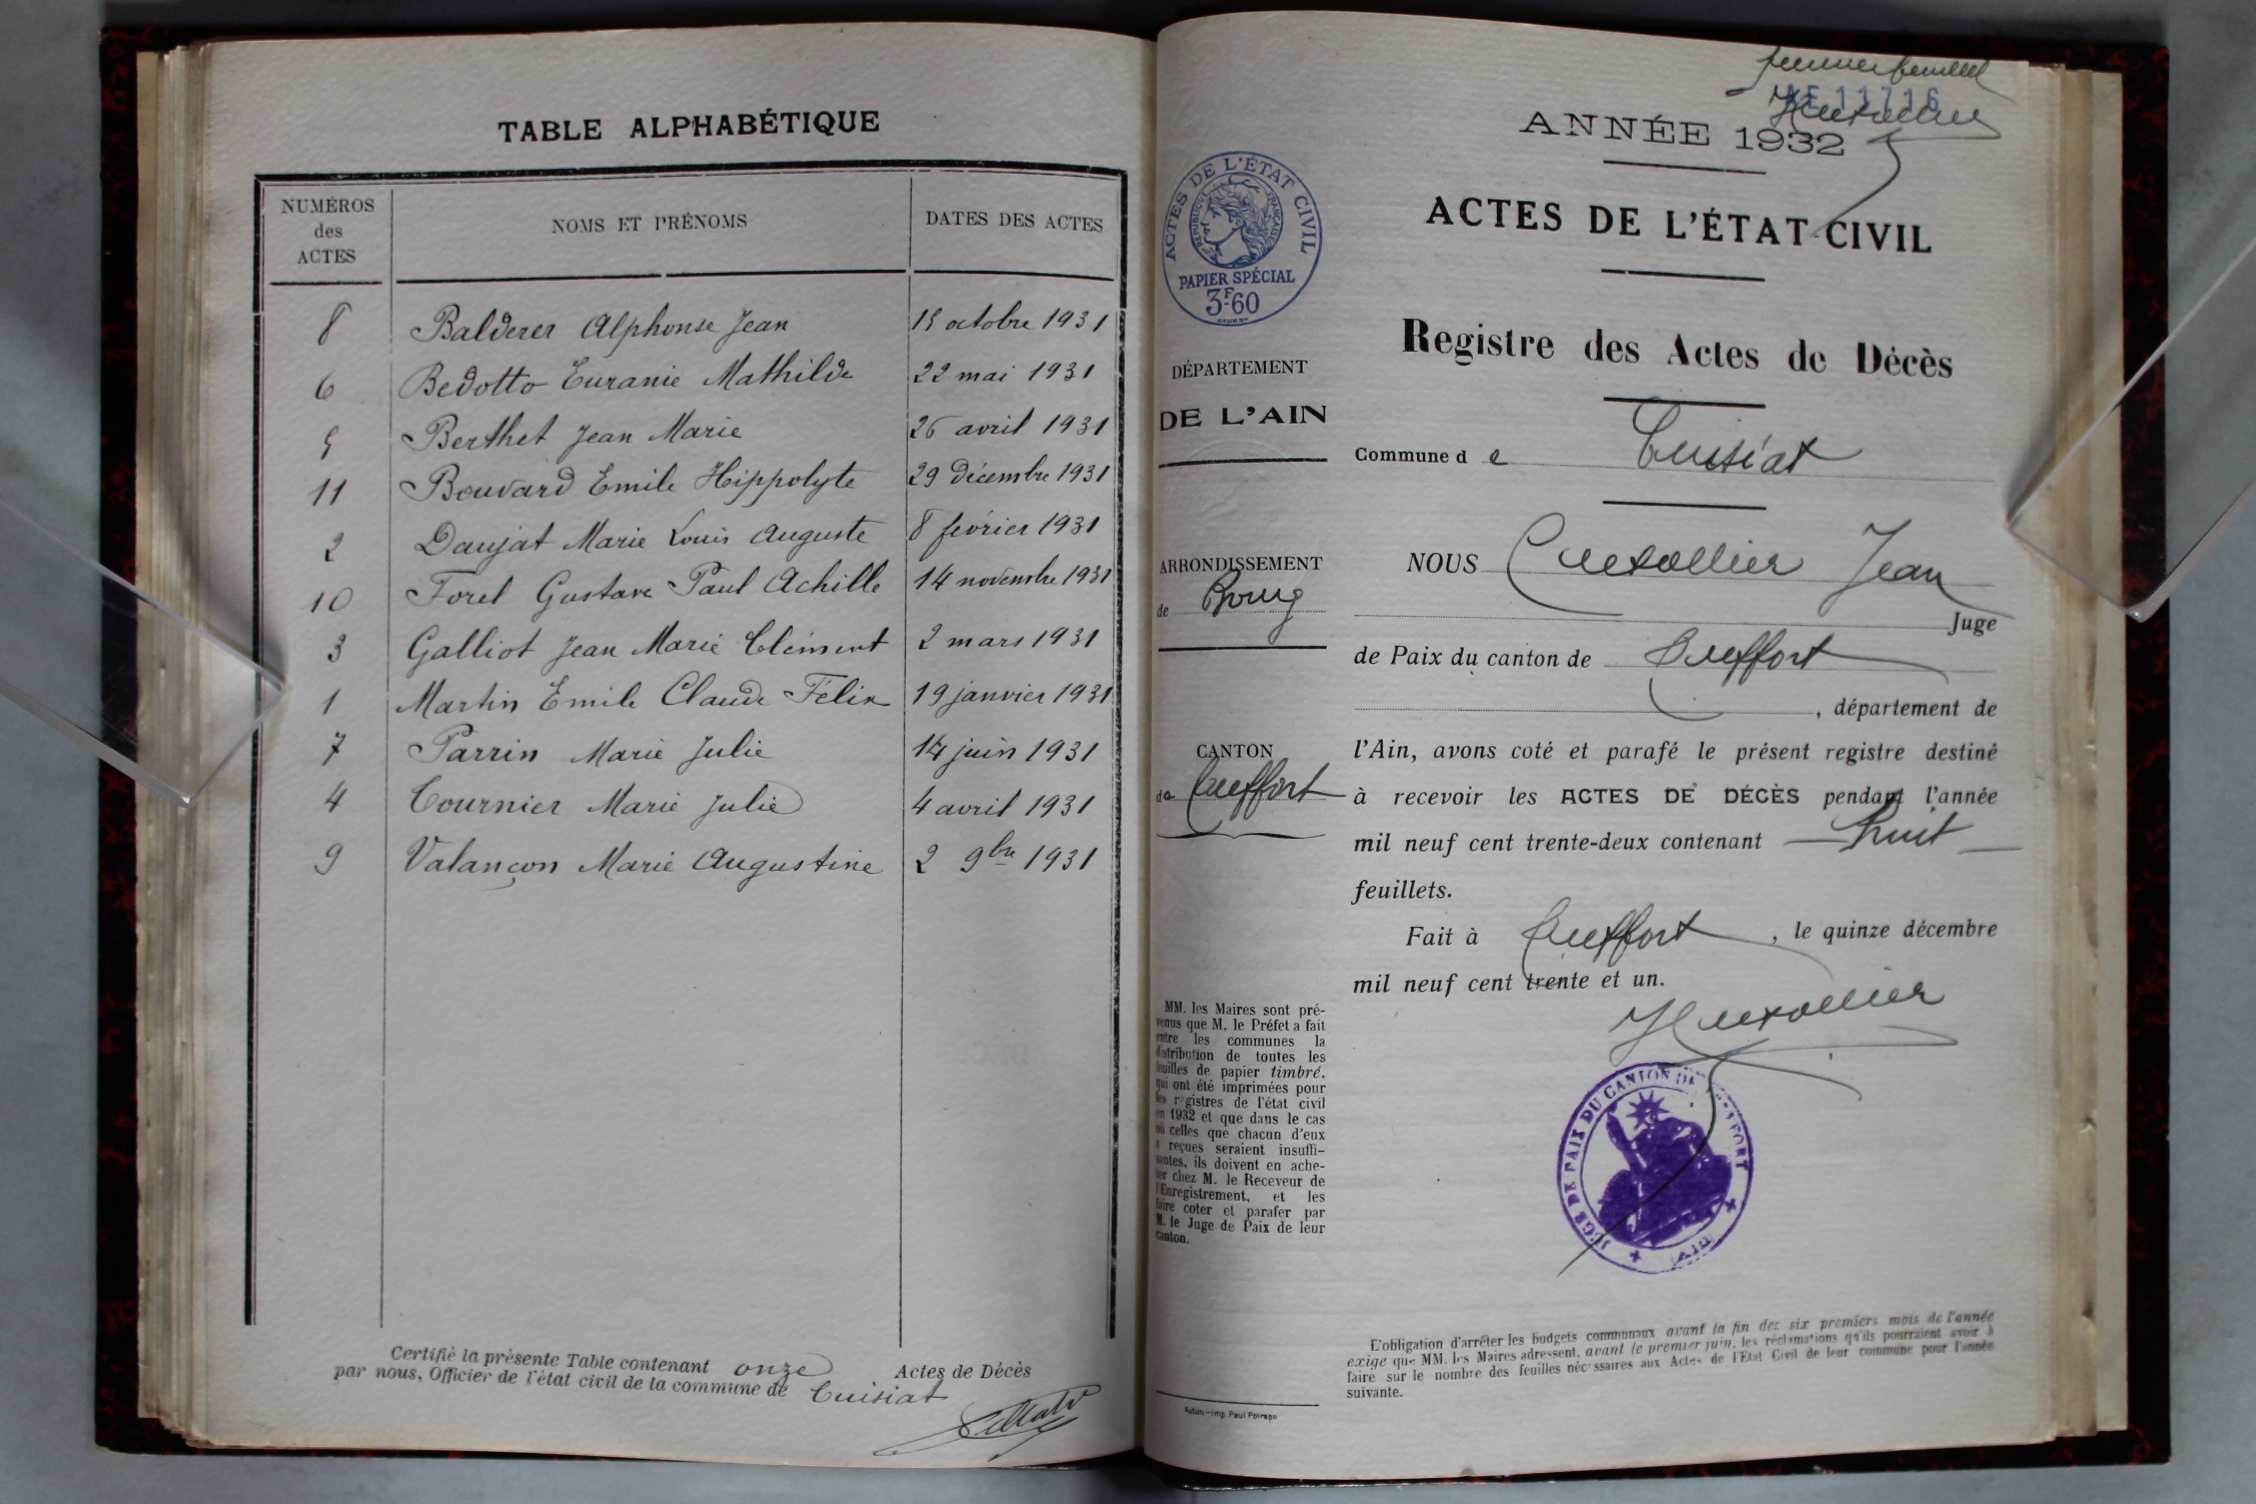 TABLE ALPHABÉTIQUE
NUMÉROS
des
ACTES
NOMS ET PRÉNOMS
DATES DES ACTES
8 Balderer Alphonse Jean 15 octobre 1931
6 Bedotto Euranie Mathilde 22 mai 1931
5 Berthet Jean Marie 26 avril 1931
11 Bouvard Emile Hippolyte 29 Décembre 1931
2 Daujat Marie Louis Auguste 8 février 1931
10 Forel Gustave Paul Achille 14 novembre 1931
3 Galliot Jean Marie Clément 2 mars 1931
1 Martin Emile Claude Félix 19 janvier 1931
7 Parrin Marie Julie 14 juin 1931
4 Tournier Marie Julie 4 avril 1931
9 Valançon Marie Augustine 2 9bre 1931
Certifié la présente Table contenant onze Actes de Décès
par nous, Officier de l'état civil de la commune de Cuisiat
premier feuillet
11716
ANNÉE 1932
ACTES DE L'ÉTAT CIVIL
RÉPUBLIQUE FRANÇAISE
PAPIER SPÉCIAL
3F60
ACTES DE L'ÉTAT CIVIL
Registre des Actes de Décès
DÉPARTEMENT
DE L'AIN
Commune de Cuisiat
ARRONDISSEMENT
de Bourg
CANTON
de Treffort
NOUS Cuxallier Jean
Juge
de Paix du canton de Treffort
, département de
l'Ain, avons coté et parafé le présent registre destiné
à recevoir les ACTES DE DÉCÈS pendant l'année
mil neuf cent trente-deux contenant huit
feuillets.
Fait à Treffort, le quinze décembre
mil neuf cent trente et un.
JUGE DE PAIX DU CANTON DE TREFFORT
(AIN)
MM. les Maires sont pré-
venus que M. le Préfet a fait
entre les communes la
distribution de toutes les
feuilles de papier timbré,
qui ont été imprimées pour
les registres de l'état civil
en 1932 et que dans le cas
où celles que chacun d'eux
a reçues seraient insuffi-
santes, ils doivent en ache-
ter chez M. le Receveur de
l'Enregistrement, et les
faire coter et parafer par
M. le Juge de Paix de leur
canton.
L'obligation d'arrêter les budgets communaux avant la fin des six premiers mois de l'année
exige que MM. les Maires adressent, avant le premier juin, les réclamations qu'ils pourraient avoir à
faire sur le nombre des feuilles nécessaires aux Actes de l'État Civil de leur commune pour l'année
suivante.